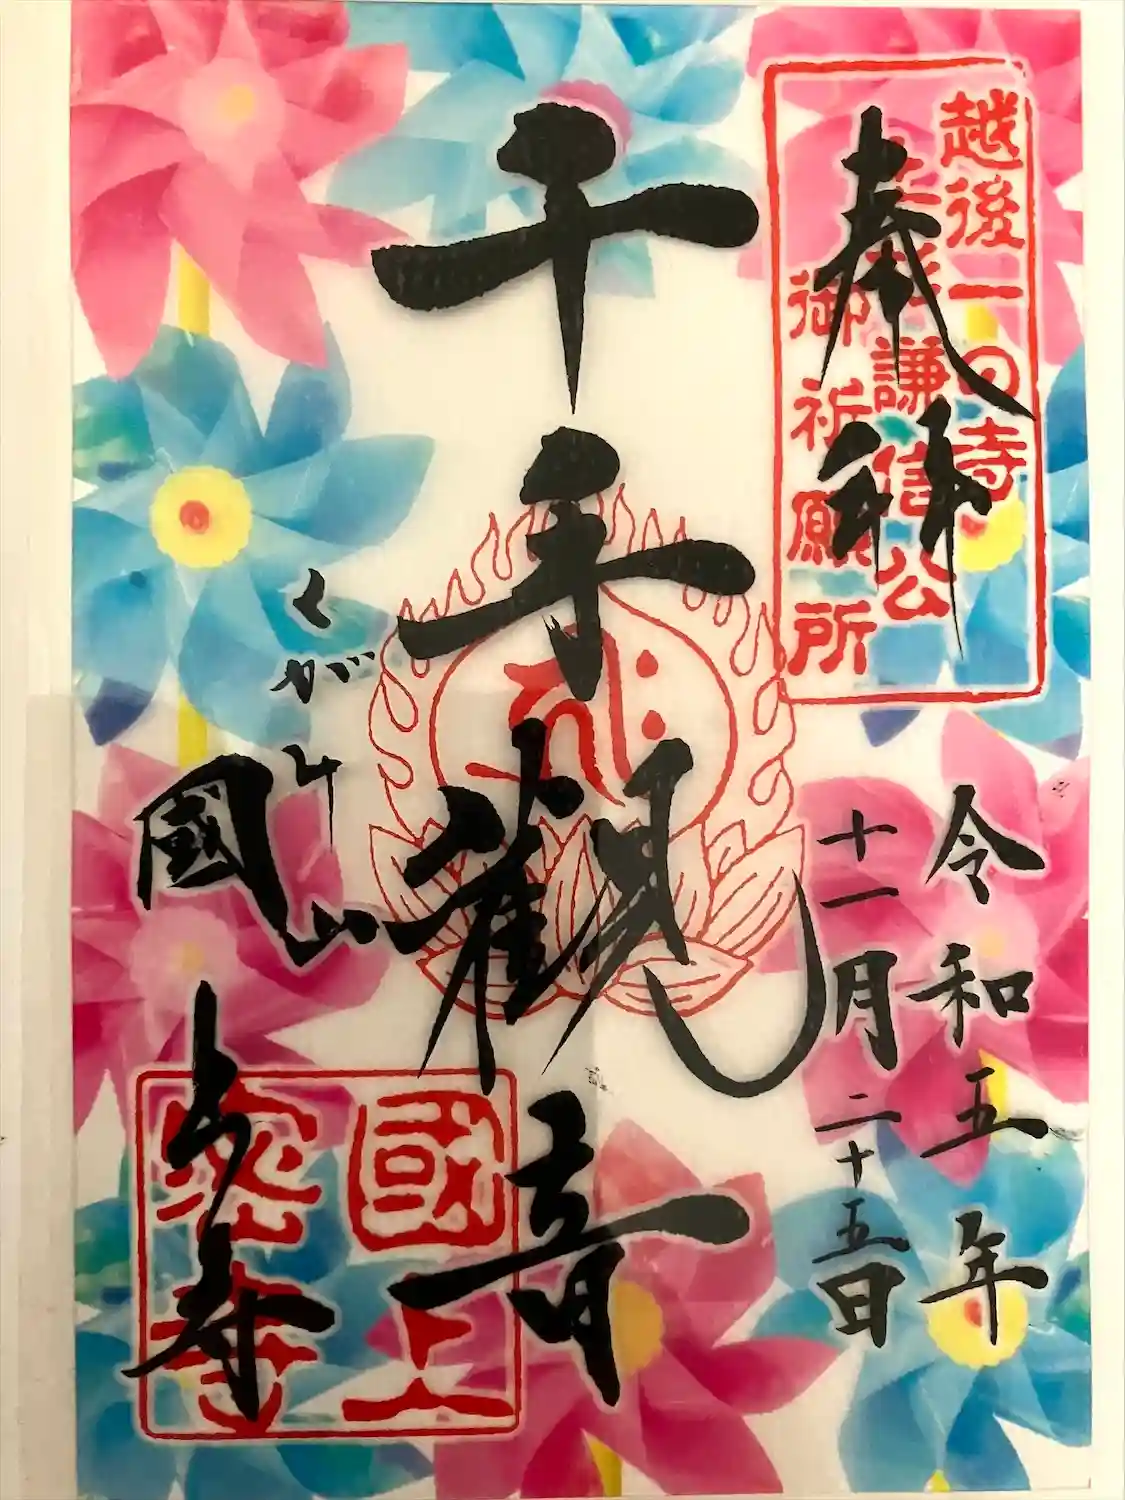 奉拝
越後一の寺
上杉謙信公
御祈願所
令和五年
十一月二十五日
千手観音
くがみ山
國上寺
國上
寺